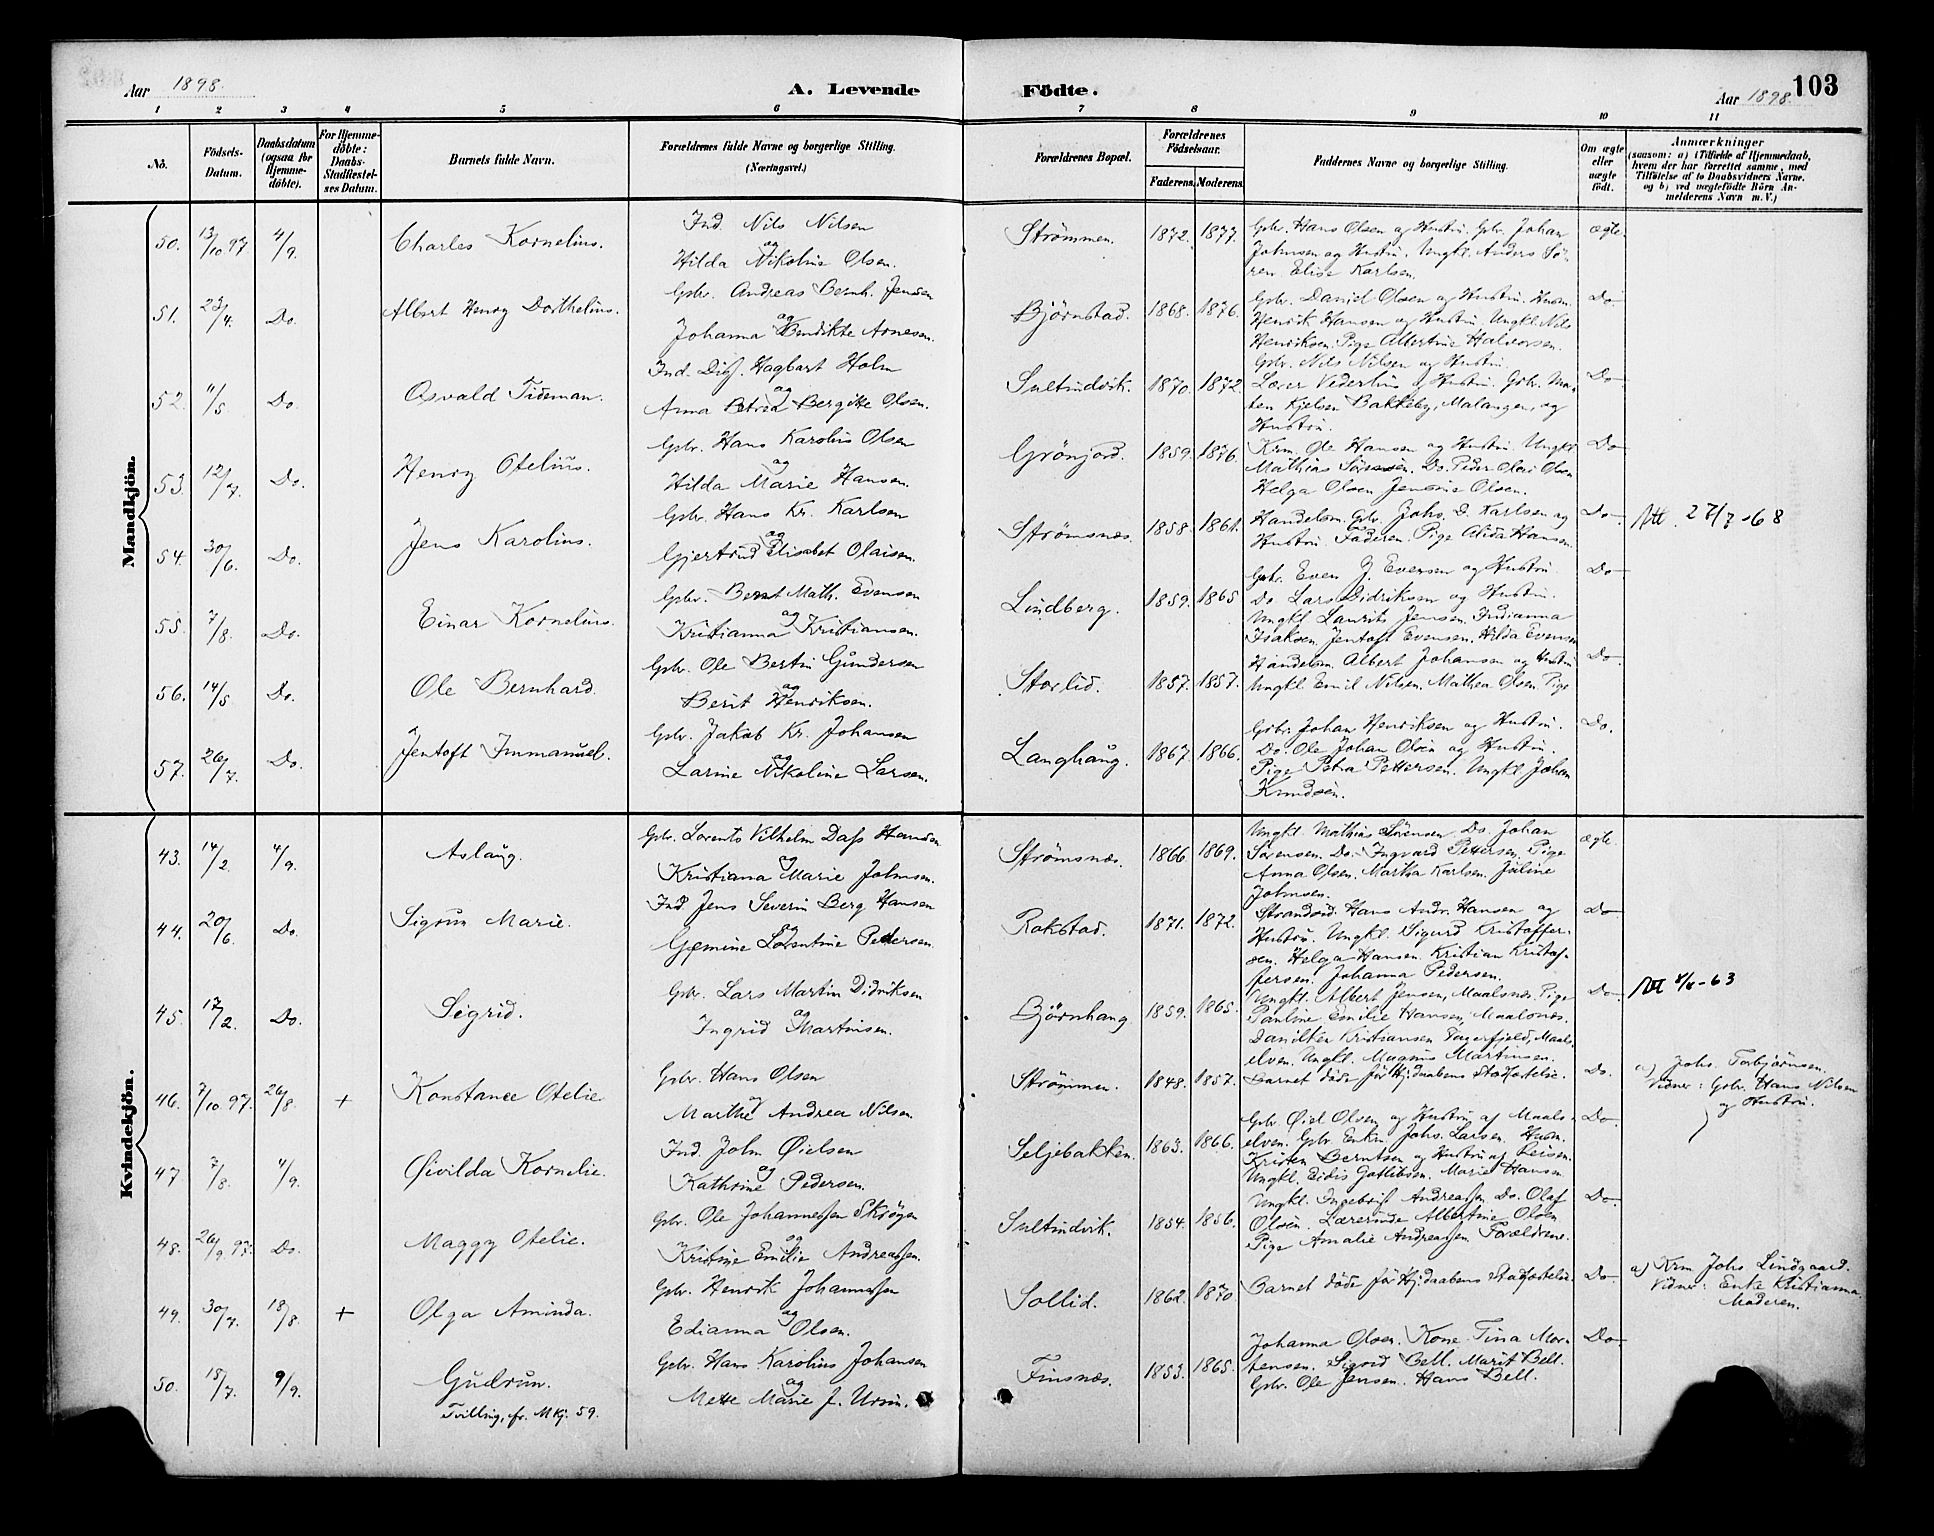 Aar 1898.
A. Levende Födte.
Aar 1898. 103
1 2 3 4 5 6 7 8 9 10 11
No.
Födsels-Datum.
Daabsdatum (ogsaa for Hjemmedöbte).
For Hjemmedöbte: Daabs-Stadfæstelses Datum.
Barnets fulde Navn.
Forældrenes fulde Navne og borgerlige Stilling. (Næringsvei.)
Forældrenes Bopæl.
Forældrenes Födselsaar.
Faderens. Moderens.
Faddernes Navne og borgerlige Stilling.
Om ægte eller uægte født.
Anmærkninger
(saasom: a) i Tilfælde af Hjemmedaab, hvem der har forrettet samme, med Tilföielse af to Daabsvidners Navne, og b) ved uægtefödte Börn Anmelderens Navn m. V.)
Mandkjön.
50. 13/10 97 4/9. Charles Kornelius. Ind. Nils Nilsen
og
Hilda Nikoline Olsen. Strømmen. 1872. 1877. Gbr. Hans Olsen og Hustru. Gbr. Johan
Johnsen og Hustru. Ungkl. Anders Sö-
ren Elise Karlsen. ægte.
51. 23/4. Do. Albert Henry Dorthelius. Gbr. Andreas Bernh. Jensen
og
Johanna Bendikte Arnesen. Björnstad. 1868. 1876. Gbr. Daniel Olsen og Hustru. Husm.
Henrik Hansen og Hustru. Ungkl. Nils
Henriksen. Pige Albertine Halvorsen.
Gbr. Nils Nilsen og Hustru Do
52. 11/5 Do. Osvald Tideman. Ind. Holm
og
Anna Petrea Bergitte Olsen. Sultindvik. 1870. 1872 Lærer Vederhus og Hustru. Gbr. Mar-
ten Kjelsen Bakkeby, Malangen, og
Hustru. Do
53. 12/7. Do. Henry Otelius. Gbr. Hans Karolius Olsen
og
Hilda Marie Hansen. Grönjord. 1859. 1876 Krm. Ole Hansen og Hustru. Ungkl.
Mathias Sörensen. Do. Peder Olai Olsen
Helga Olsen Jensine Olsen. Do
54. 30/6. Do. Jens Karolius. Gbr. Hans Kr. Karlsen
og
Gjertrud Elisabet Olaisen. Strömsnæs. 1858. 1861. Handelsm. Gbr. Johs. D. Karlsen og
Hustru. Faderen. Pige Alida Hansen. Do 27/7-68
55. 7/8. Do. Einar Kornelius. Gbr. Bernt Math. Evensen
og
Kristianna Kristiansen. Lindberg. 1859. 1865 Gbr. Even J. Evensen og Hustru.
Do. Lars Didriksen og Hustru.
Ungkl Laurits Jensen. Indianna
Isaksen. Jentoft Evensen. Hilda Evensen Do
56. 14/5 Do. Ole Bernhard. Gbr. Ole Bertin Gundersen
og
Berit Henriksen. Storlid. 1857. 1857. Handelsm. Albert Johansen og Hustru
Ungkl. Emil Nilsen. Mathea Olsen. Pige Do.
57. 26/7. Do. Jentoft Immanuel. Gbr. Jakob Kr. Johansen
og
Larine Nikoline Larsen. Langhaug. 1867. 1866. Gbr. Johan Henriksen og Hustru.
Do. Ole Johan Olsen og Hustru.
Pige Petra Pettersen. Ungkl. Johan
Knudsen. Do.
Kvindekjön.
43. 14/2 4/9. Aslaug. Gbr. Lorents Vilhelm Dass Hansen
og
Kristiana Marie Johnsen. Strömsnæs. 1866 1869. Ungkl. Mathias Sörensen. Do. Johan
Sörensen. Do. Ingvard Pettersen. Pige
Anna Olsen. Martha Karlsen. Juline
Johnsen. ægte.
44. 20/6. Do. Sigrun Marie. Ind Jens Severin Berg Hansen
og
Lorentine Pedersen. Rokstad. 1871. 1872. Strandsid. Hans Andr. Hansen og
Hustru. Ungkl. Sigurd Kristoffer-
sen. Helga Hansen. Kristian Kristof-
fersen. Johanna Pedersen. Do
45. 17/2. Do. Sigrid. Gbr. Lars Martin Didriksen
og
Ingrid Martinsen. Björnhaug 1859. 1865. Ungkl. Albert Jensen, Maalsnæs. Pige
Pauline Emilie Hansen, Maalsnæs.
Kristiansen Maals-
elven. Ungkl. Magnus Martinsen. Do 8/6-63
46. 7/10 97. 26/8. + Konstance Otelie Gbr. Hans Olsen
og
Marthe Andrea Nilsen Strömmen. 1848. 1857. Barnet döde för Hj.daabens Stadfæstelse. Do. a) Johs. Torbjörnsen.
Vidner: Gbr. Hans Nilsen
og Hustru.
47. 7/8. 4/9. Öivilda Kornelie. Ind. John Öielsen
og
Kathrine Pedersen. Seljebakken. 1863. 1866. Gbr. Öiel Olsen og Hustru af Maals-
elven. Gbr. Enkm. Johs. Larsen. Husm.
Kristen Berntsen og Hustru af Leisen.
Ungkl. Eidis Gotlibsen. Marie Hansen Do
48. 26/9 97. Do. Maggy Otelie. Gbr. Ole Johannessen Skrögen
og
Kristine Emilie Andreassen. Sultindvik. 1854. 1856. Ungkl. Ingebrigt Andreassen. Do. Olaf
Olsen. Lærerinde Albertine Olsen
Pige Amalie Andreassen. Forældrene. Do
49. 30/7. 18/8 + Olga Aminda. Gbr. Henrik Johannessen
og
Edianna Olsen. Sollid. 1862. 1870 Barnet döde för Hj.daabens Stadfæstelse. Do a) Krm Johs. Lindgaard.
Vidner: Enke Kristianna
Moderen.
50. 15/7. 9/9. Gudrun.
Tvilling, fr. Mkj. 59. Gbr. Hans Karolius Johansen
og
Mette Marie J. Ursin. Finsnæs. 1853. 1865. Johanna Olsen. Kone Tina Mor-
tensen. Sigurd Bell. Marit Bell.
Gbr. Ole Jensen. Hans Bell. Do